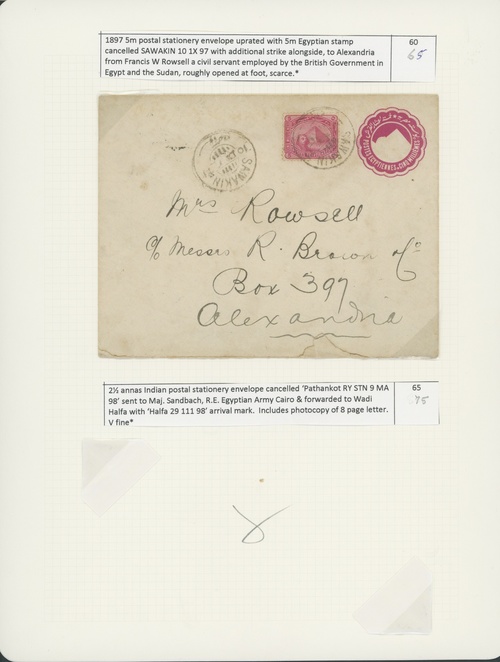 1897 5m postal stationery envelope uprated with 5m Egyptian stamp
cancelled SAWAKIN 10 1X 97 with additional strike alongside, to Alexandria
from Francis W Rowsell a civil servant employed by the British Government in
Egypt and the Sudan, roughly opened at foot, scarce.*
60
65
SAWAKIN
SAWAKIN
POSTES EGYPTIENNES
Mrs Rowsell
c/o Messrs R. Brown & Co
Box 397
Alexandria
2½ annas Indian postal stationery envelope cancelled 'Pathankot RY STN 9 MA
98' sent to Maj. Sandbach, R.E. Egyptian Army Cairo & forwarded to Wadi
Halfa with 'Halfa 29 111 98' arrival mark.  Includes photocopy of 8 page letter.
V fine*
65
75